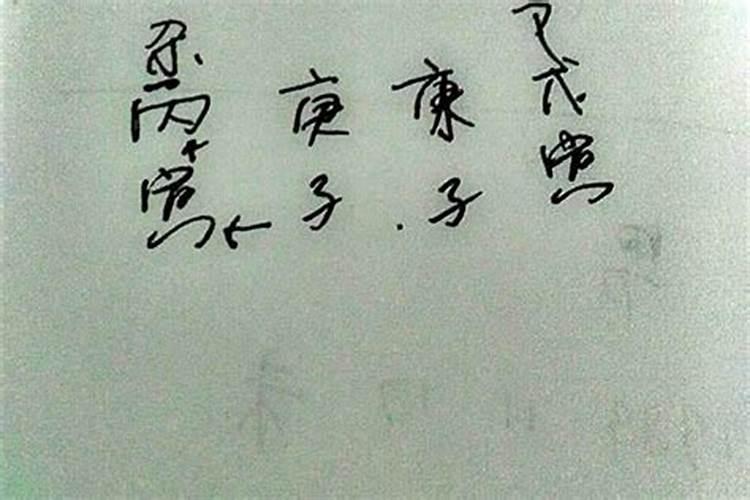 丙寅
庚子
庚子
戊寅